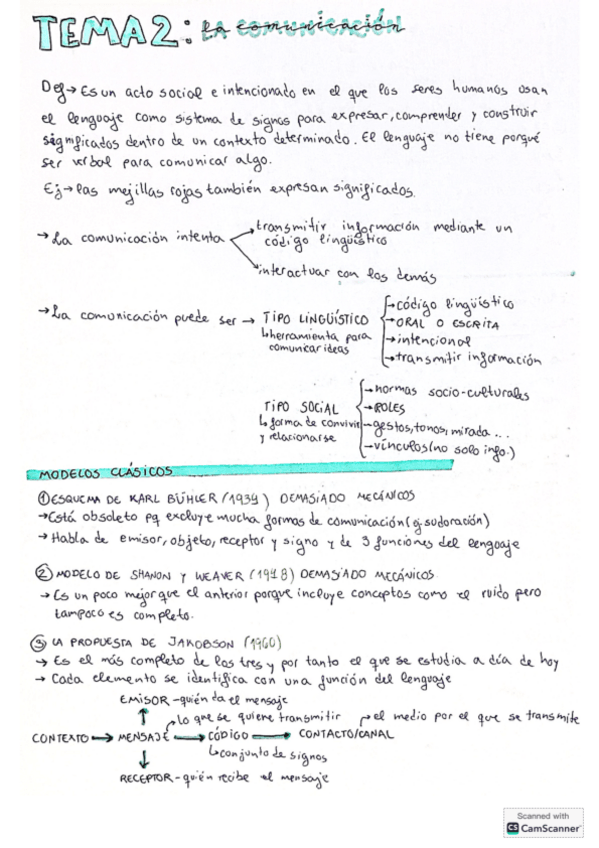 TEMA 2: LA COMUNICACIÓN
Def → Es un acto social e intencionado en el que los seres humanos usan
el lenguaje como sistema de signos para expresar, comprender y construir
significados dentro de un contexto determinado. El lenguaje no tiene porqué
ser verbal para comunicar algo.
Ej → las mejillas rojas también expresan significados.
→ La comunicación intenta
transmitir información mediante un
código lingüístico
interactuar con los demás
→ La comunicación puede ser → TIPO LINGÜÍSTICO
↳ herramienta para
comunicar ideas
→ código lingüístico
→ ORAL O ESCRITA
→ intencional
→ transmitir información
TIPO SOCIAL
↳ forma de convivir
y relacionarse
→ normas socio-culturales
→ ROLES
→ gestos, tonos, mirada...
→ vínculos (no solo info.)
MODELOS CLÁSICOS
① ESQUEMA DE KARL BÜHLER (1934) DEMASIADO MECÁNICOS
→ Está obsoleto pq excluye mucha formas de comunicación (ej sudoración)
→ Habla de emisor, objeto, receptor y signo y de 3 funciones del lenguaje
② MODELO DE SHANON Y WEAVER (1948) DEMASIADO MECÁNICOS.
→ Es un poco mejor que el anterior porque incluye conceptos como el ruido pero
tampoco es completo.
③ LA PROPUESTA DE JAKOBSON (1960)
→ Es el más completo de los tres y por tanto el que se estudia a día de hoy
→ Cada elemento se identifica con una función del lenguaje
EMISOR - quién da el mensaje
lo que se quiere transmitir
el medio por el que se transmite
CONTEXTO → MENSAJE → CÓDIGO → CONTACTO/CANAL
↳ conjunto de signos
RECEPTOR - quién recibe el mensaje
Scanned with
CS CamScanner